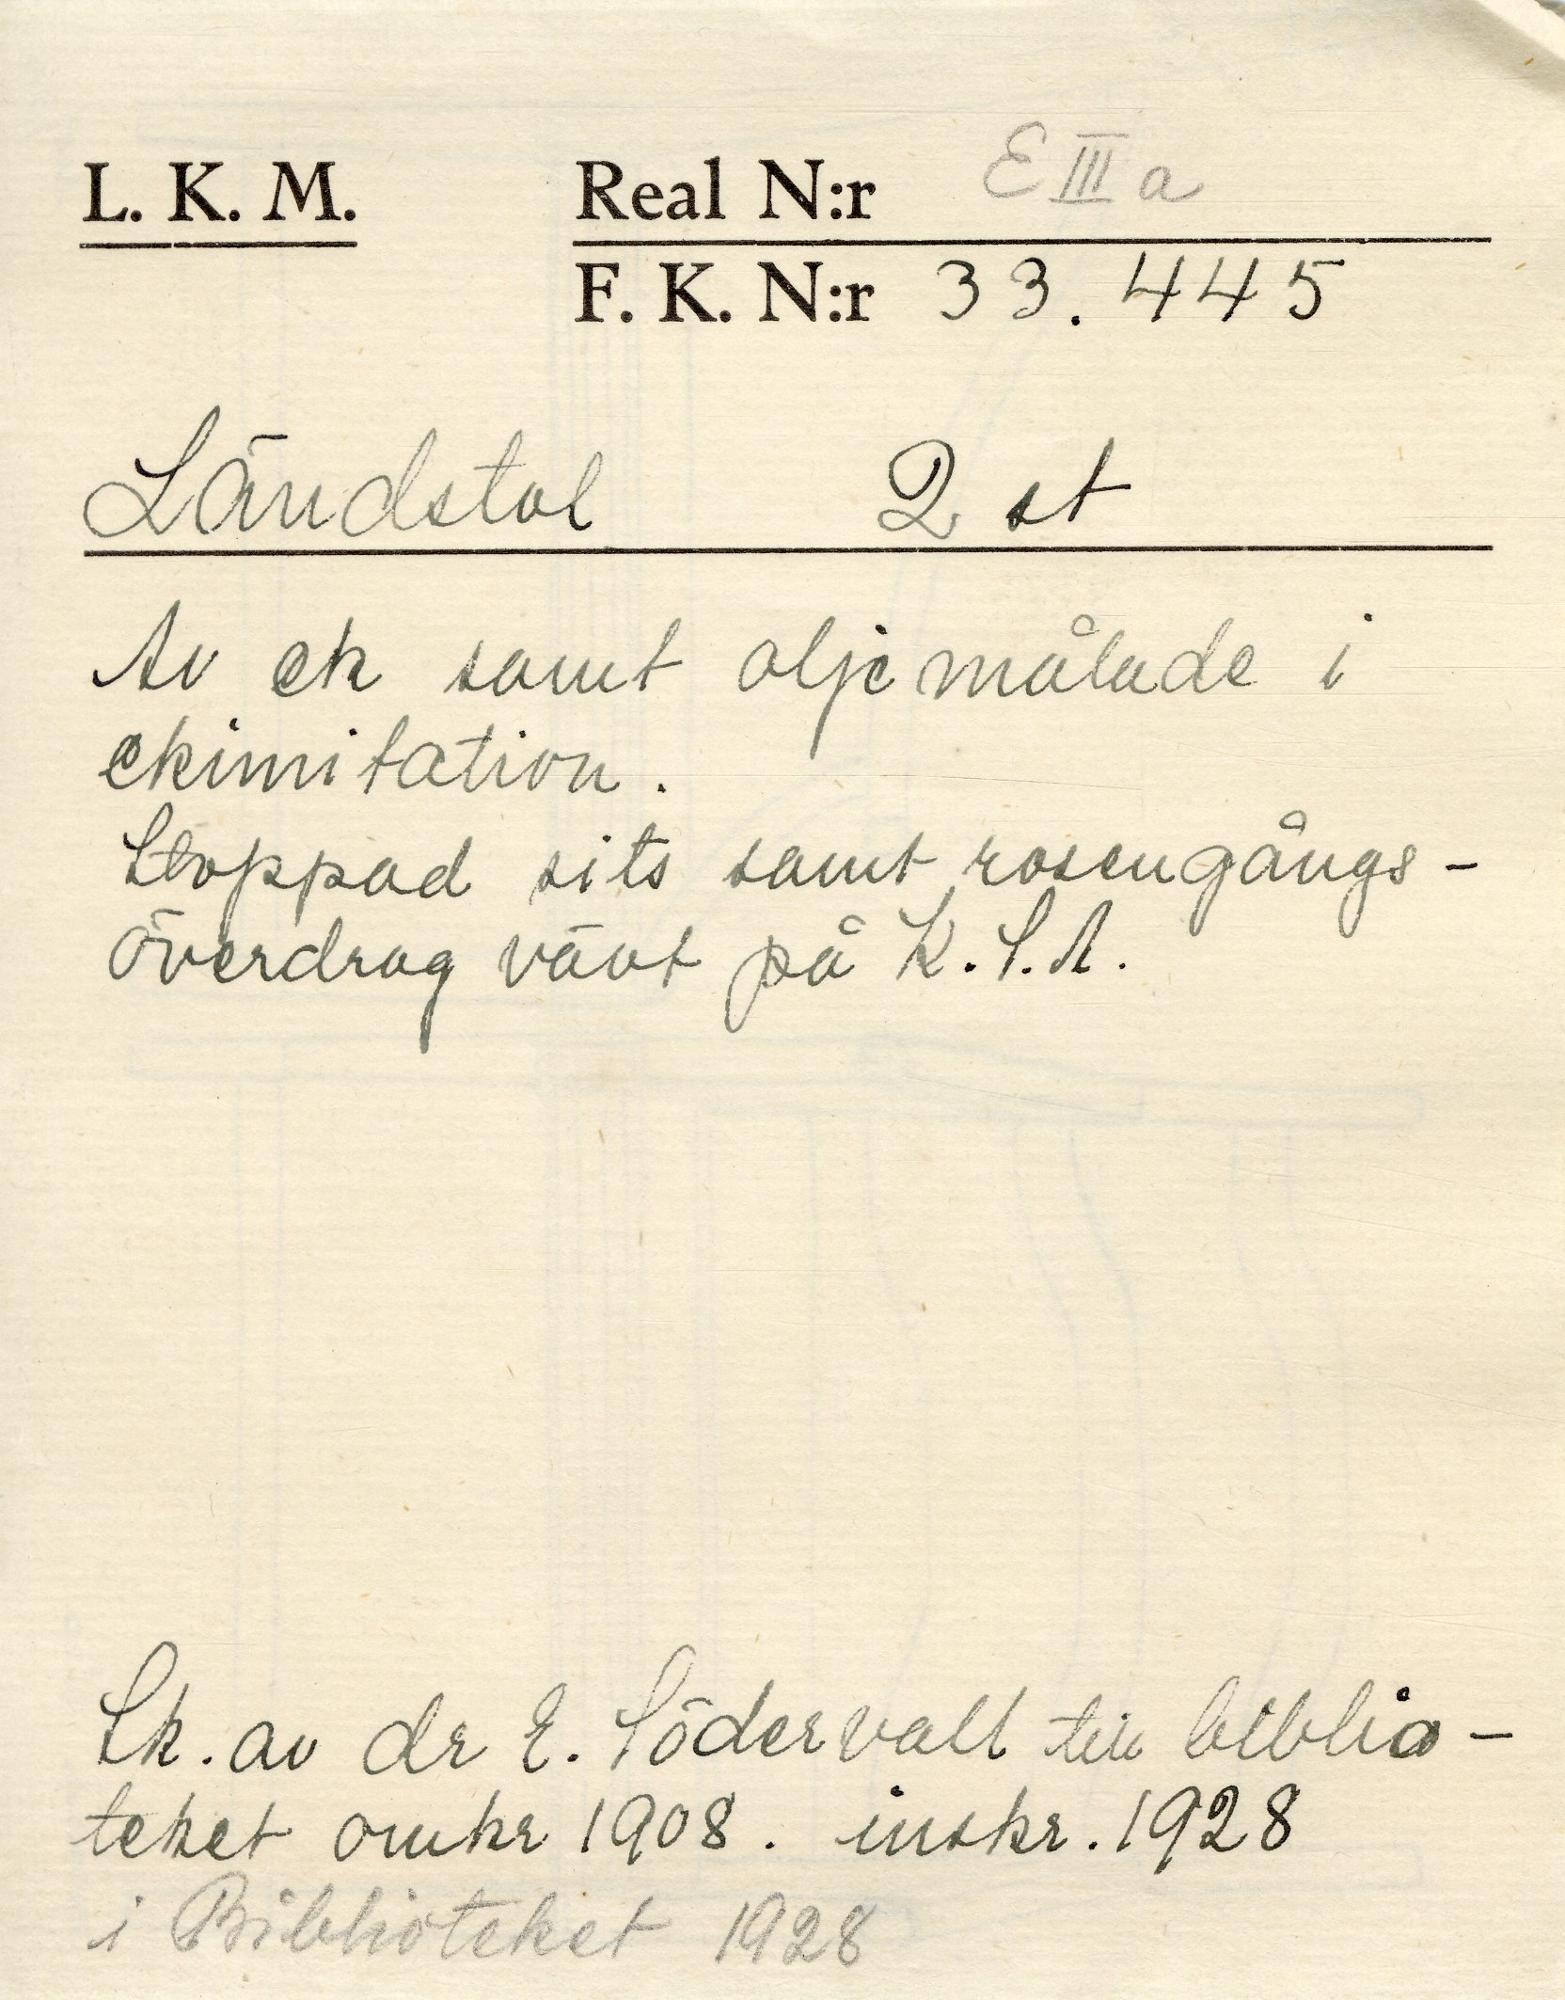 L. K. M. Real N:r E III a
F. K. N:r 33.445
Ländstol 2 st
Av ek samt oljemålade i
ekimitation.
Stoppad sits samt rosengångs-
överdrag vävt på K.S.A.
Sk. av dr E. Södervall till biblio-
teket omkr 1908. inskr. 1928
i Biblioteket 1928